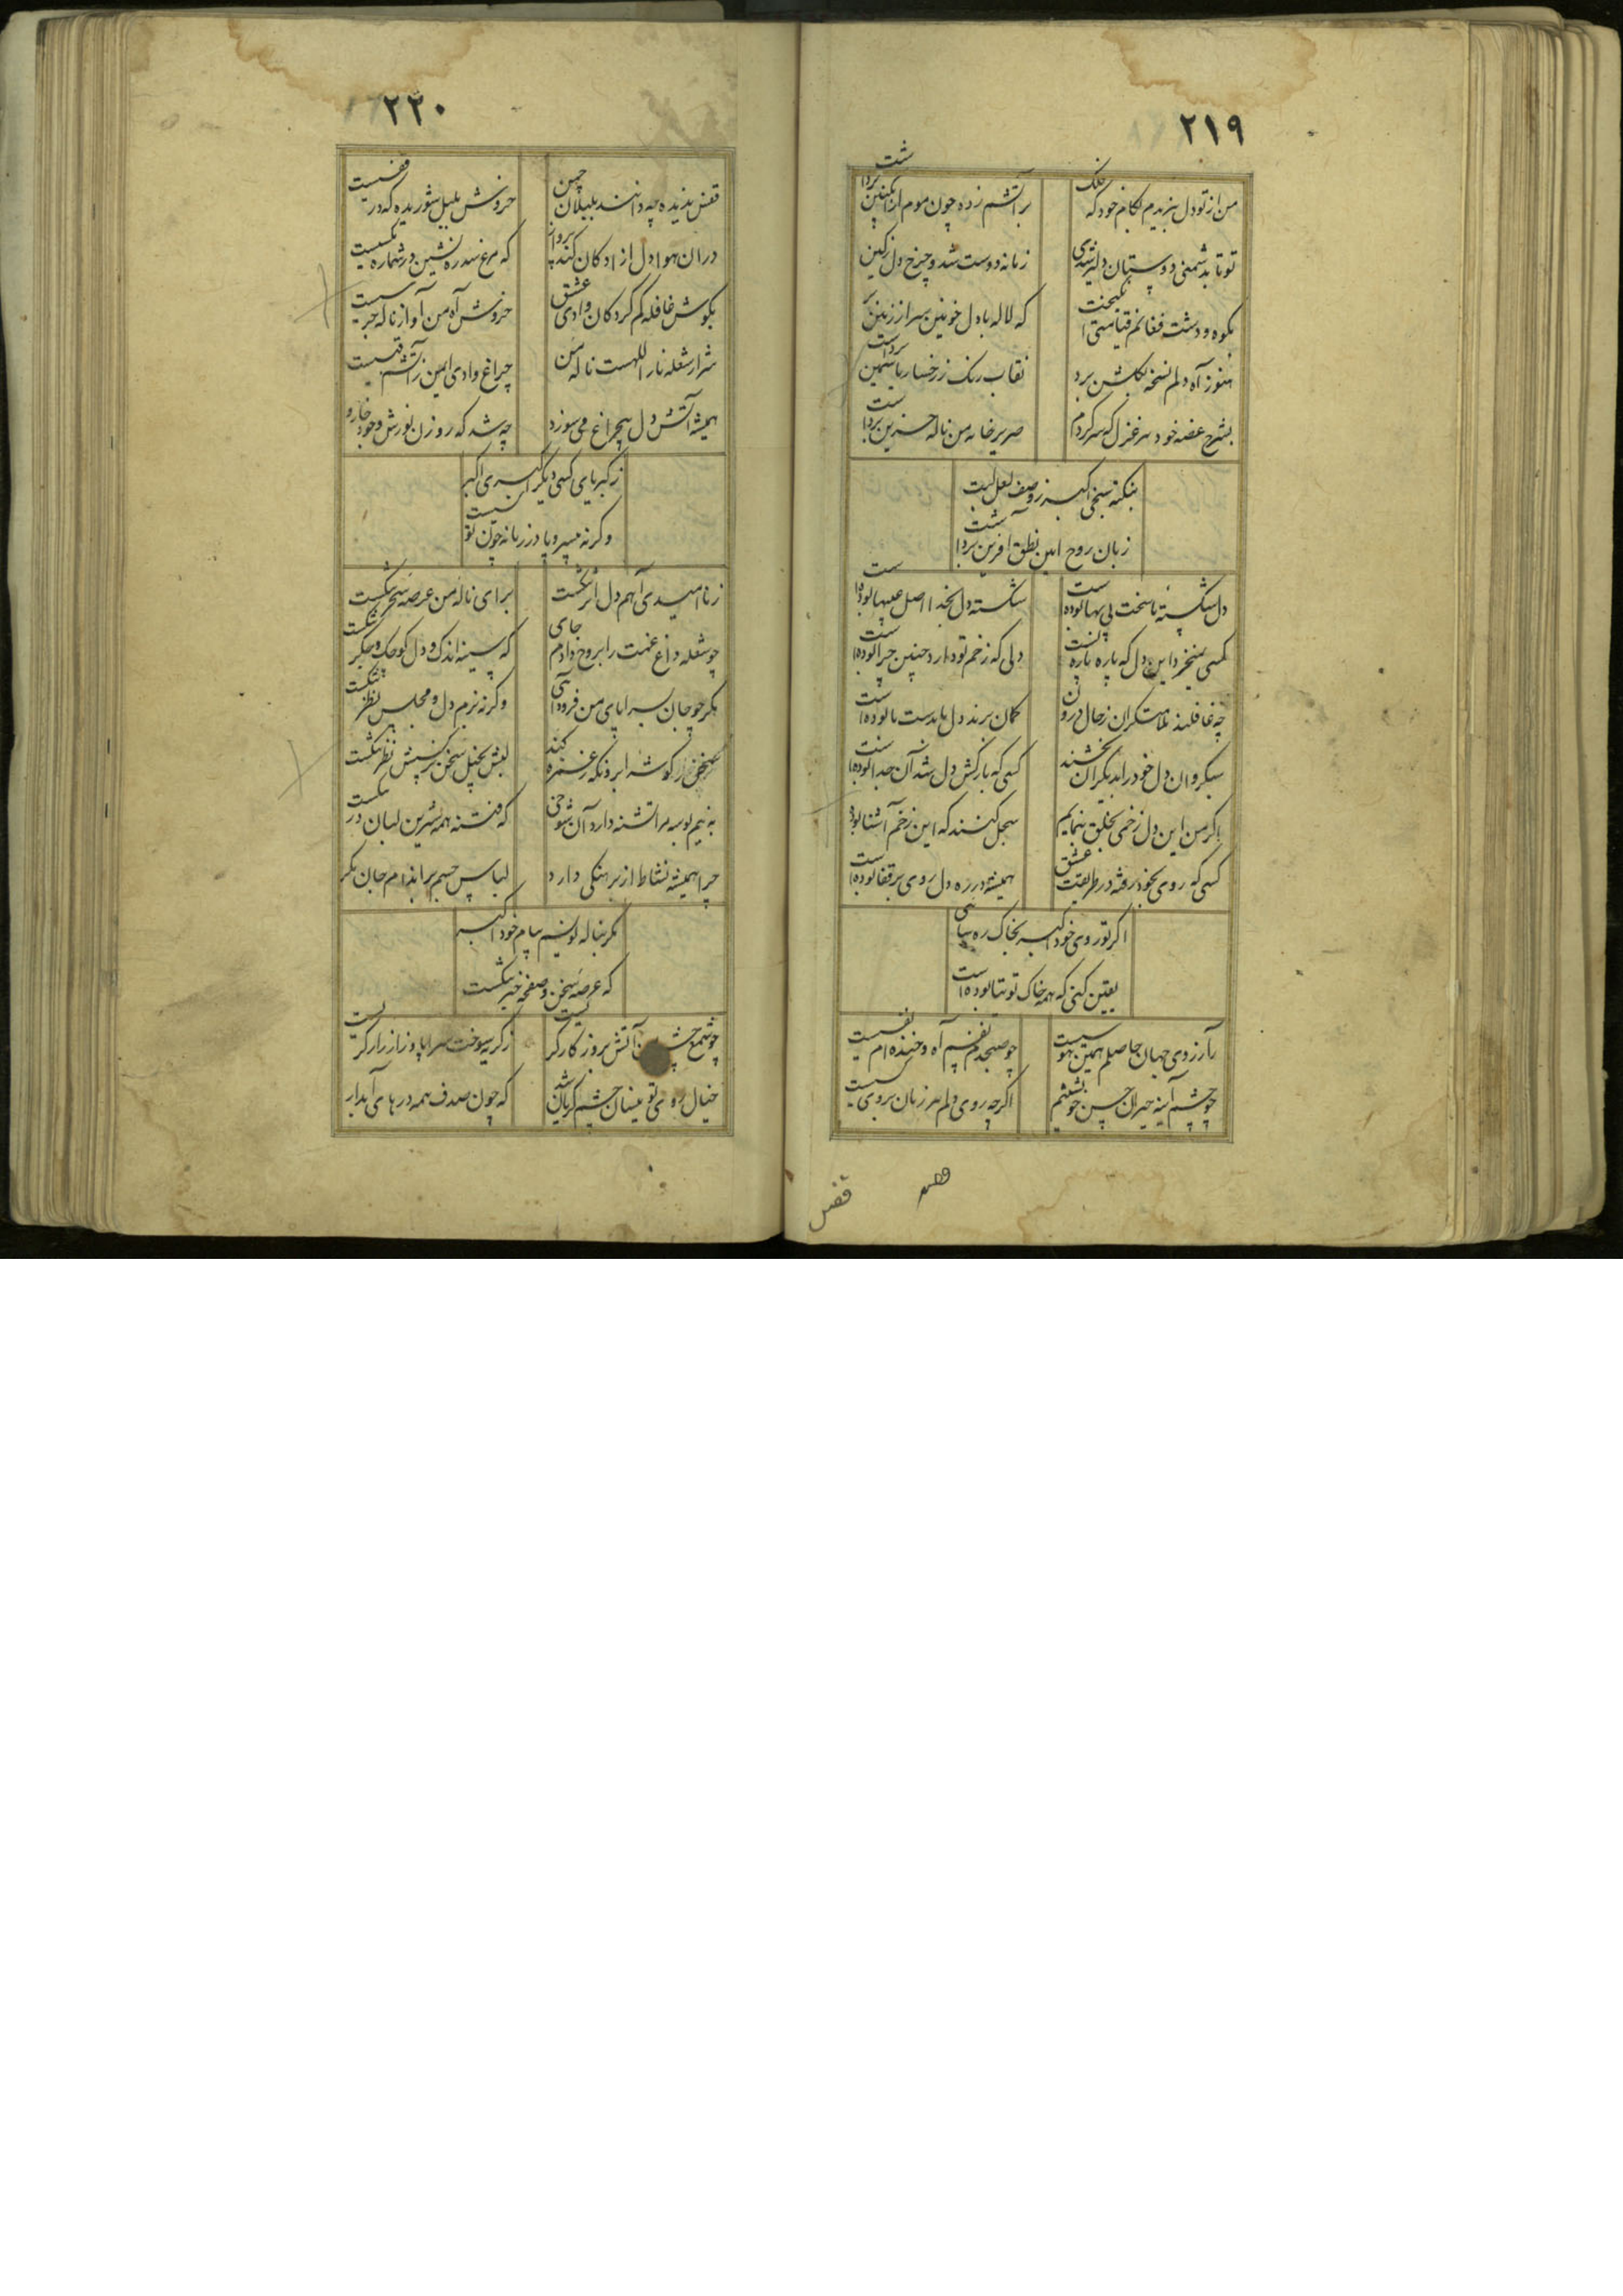 ۲۱۹
من از تو دل نبریدم بکام خود که فلک
بر آتشم زده چون موم از انگبین برداشت
تو تا بدشمنی دوستان دلیر شدی
زمانه دوست شد و چرخ دل ز کین
بکوه و دشت فغانم قیامتی انگیخت
که لاله با دل خونین سر از زمین
هنوز آه دلم نسخه بگلشن برد
نقاب رنگ ز رخسار یاسمین برداشت
بشرح غصه خود هر غزل که سر کردم
صریر خامه من ناله حزین برداشت
بنکته سنجی اکبر ز وصف لعل لبت
زبان روح امین نطق آفرین برداشت
دل شکسته ما سخت بی بها بودست
شکسته دل بخدا اصل عیبها بودست
کسی نمیخرد این دل که پاره پاره تست
دلی که زخم تو دارد چنین چرا بودست
چه غافلند ملامتگران ز حال درون
گمان برند دل ما بدست ما بودست
سبکروان دل خود را بدیگران بخشند
کسی که بارکش دل شد آن جدا بودست
اگر من این دل زخمی بخلق بنمایم
سجل کنند که این زخم آشنا بود
کسی که روی بخود رفته در طریقت عشق
همیشه در ره دل روی بر قفا بودست
اگر تو روی خود اکبر بخاک ره سائی
یقین کنی که همه خاک توتیا بودست
ز آرزوی جهان حاصلم همین هوسیست
چو صبحدم نفسم آه و خنده ام نفسیست
چو چشم آینه حیران حسن خویشتنم
اگرچه روی دلم هر زمان بروی کسیست
قفس
۲۲۰
قفس ندیده چه دانند بلبلان چمن
خروش بلبل شوریده که در قفسیست
در ان هوا دل ازادگان کند پرواز
که مرغ سدره نشین در شماره مگسیست
بگوش قافله گم کردگان وادی عشق
خروش آه من آواز ناله جرسیست
شرار شعله نار اللهست ناله من
چراغ وادی ایمن ز آتشم قبسیست
همیشه آتش دل بیچراغ می سوزد
چه شد که روزن نورش وجود خار و
ز کبریای کسی دیگر اکبری اکبر
وگرنه بیسر و پا در زمانه چون تو بسیست
ز ناامیدی آهم دل اثر شکست
برای ناله من عرصه سحر شکست
چو شعله داغ غمت را بروح دادم جای
که سینه اندک و دل کوچک و جگر شکست
مگر چو جان بسراپای من فرود آئی
وگرنه بزم دل و مجلس نظر شکست
سخن ز گوشه ابرو نگه ز غمزه کند
لبش بخیل سخن نرگسش نظر شکست
به نیم بوسه مرا تشنه دارد آن شوخی
که فتنه همه شیرین لبان در شکست
چرا همیشه نشاط از برهنگی دارد
لباس جسم بر اندام جان مگر
مگر بناله نویسم پیام خود اکبر
که عرصه سخن و صفحه خبر شکست
چو شمع چشم من آتش بروزگار گریست
ز گریه سوخت سراپا و زار زار گریست
خیال روی تو نیسان چشم گریان شد
که چون صدف همه درهای آبدار